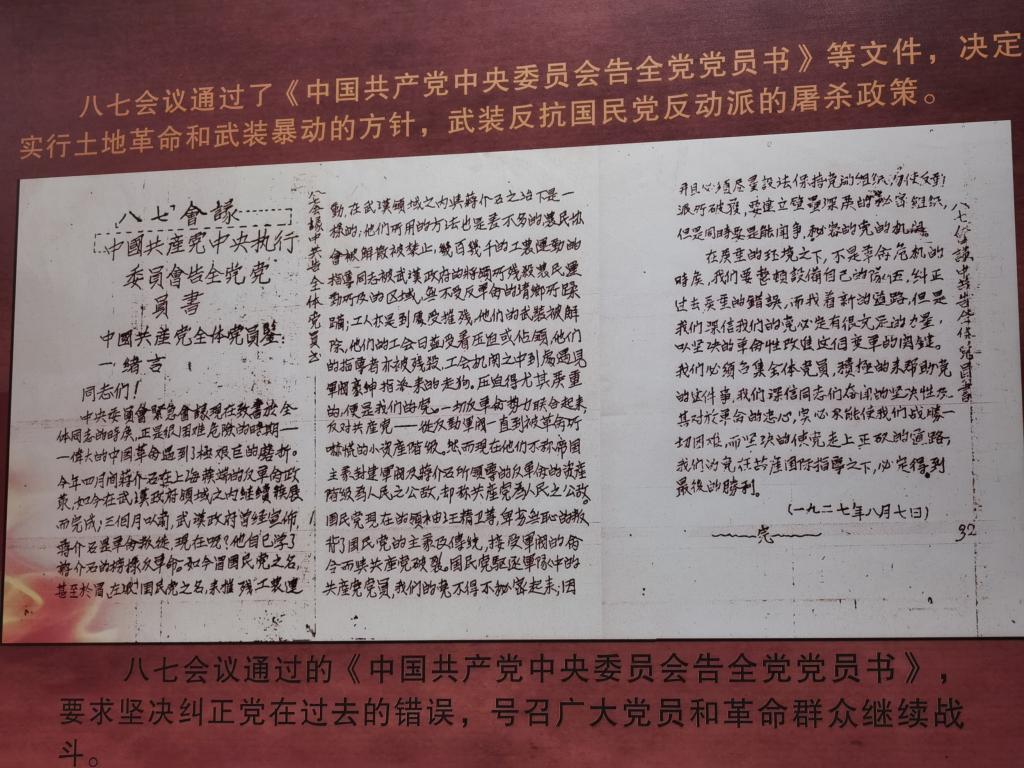 八七会议通过了《中国共产党中央委员会告全党党员书》等文件，决定
实行土地革命和武装暴动的方针，武装反抗国民党反动派的屠杀政策。
八七會議
中國共産党中央执行
委員會告全党党
員書
中國共産党全体党員鑒：
一 绪言
同志们！
中央委員會緊急會議現在致書於全
体同志的时候，正是很困难危险的时期——
一偉大的中国革命遇到了極艰巨的磨折。
今年四月间蒋介石在上海
束，如今在武漢政府领域之内继續發展
而完成；三個月以前，武漢政府曾经宣佈
蒋介石是革命叛徒，現在呢？他自己学了
蒋介石的榜樣反革命。如今冒國民党之名，
甚至於冒左派國民党之名，来摧残工農運
八七会議中共告全体党員书
動，在武漢領域之内與蒋介石之治下是一
樣的；他们所用的方法也是差不多的農民协
會被解散被禁止，幾百幾千的工農運動的
指導同志被武漢政府的将领所残殺農民運
動所及的区域，無不受反革命的清鄉所蹂
躏；工人亦是到處受摧残，他们的武裝被解
除，他们的工会日益没着压迫或佔领，他们
的指導者亦被残殺，工会机関之中到處遇見
軍閥豪紳指派来的走狗。压迫得尤其厳重
的，便是我们的党。一切反革命势力联合起来，
反对共産党——從反動軍閥一直到被革命所
嚇慌的小資産階级。然而現在他们不称帝国
主義封建軍閥及蒋介石所领導的反革命的資産
階级為人民之公敵，却称共産党為人民之公敵。
国民党現在的领袖汪精卫等，卑劣無恥的叛
背了國民党的主義及傳统，接受軍閥的命
令而與共産党破裂。国民党駆逐軍隊中的
共産党党員，我们的党不得不秘密起来；因
并且必须尽量設法保持党的組织，勿使反動
派所破獲，要建立坚固深厚的秘密組织，
但是同時要是能闹争，秘密的党的机関
在厳重的环境之下，不是革命危机的
時候，我们要整顿設備自己的隊伍，纠正
过去厳重的錯誤，而找着新的道路，但是
我们深信我们的党必定有很充足的力量，
以坚决的革命性改進這個变革的関键。
我们必须号集全体党員，積極的来帮助党
的這件事，我们深信同志们奋闘的坚决性及
其对於革命的忠心，定必不能使我们战勝一
切困难，而坚决的使党走上正确的道路；
我们的党在共産国际指導之下，必定得到
最後的勝利。
（一九二七年八月七日）
完
92
八七會議中共告全体党員書
八七会议通过的《中国共产党中央委员会告全党党员书》，
要求坚决纠正党在过去的错误，号召广大党员和革命群众继续战
斗。